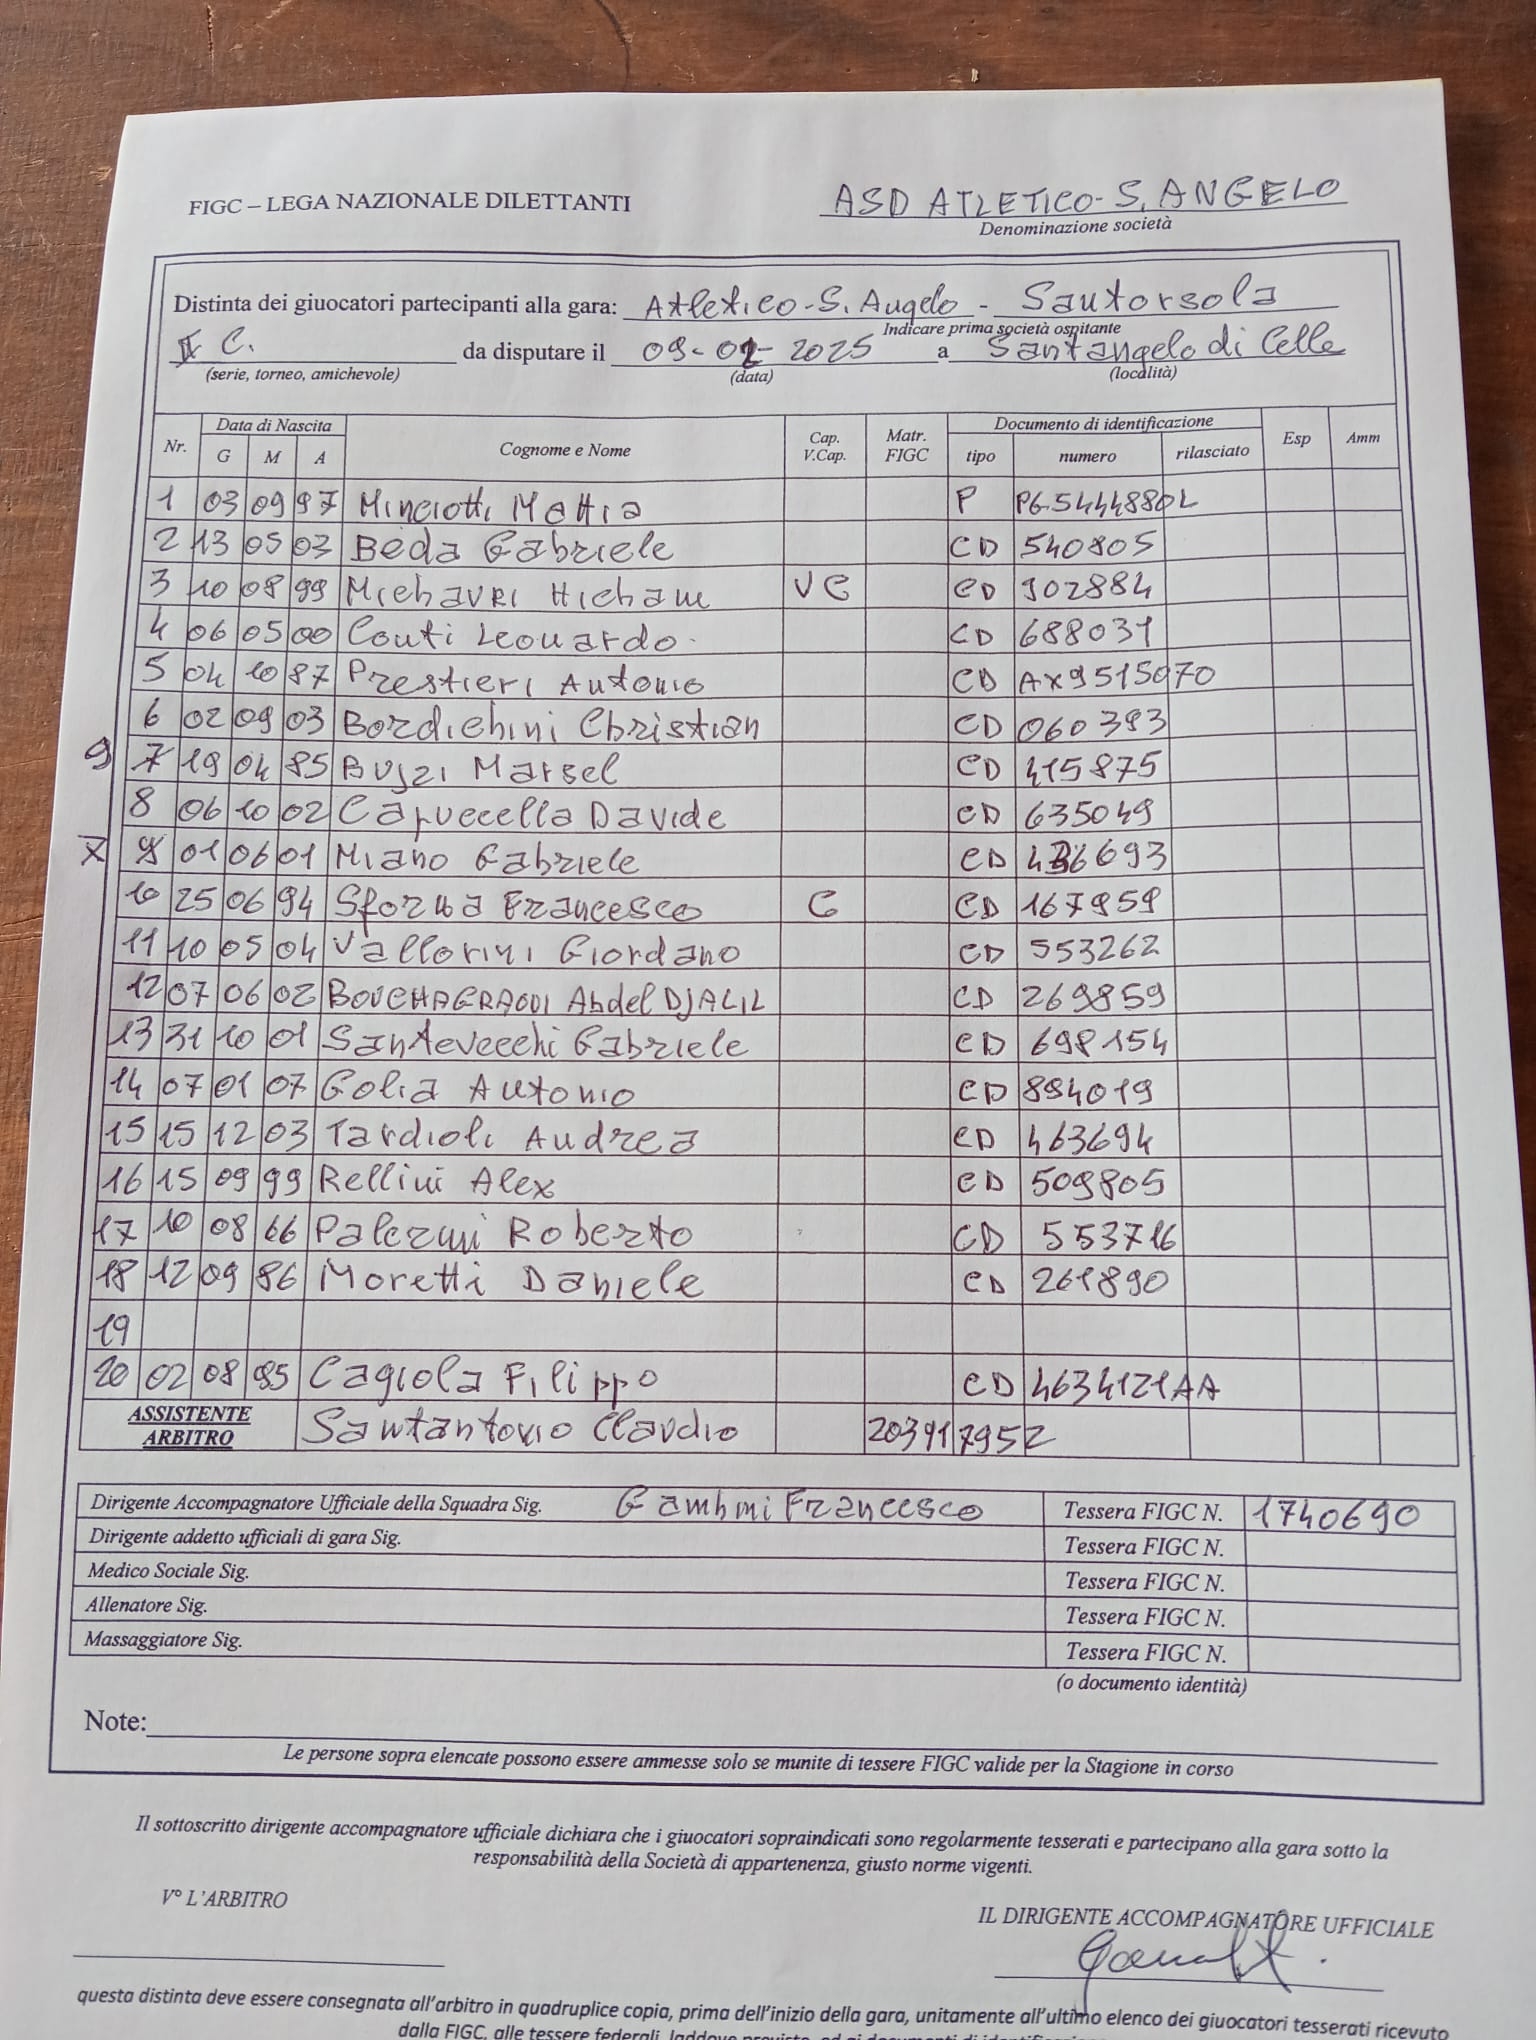 FIGC – LEGA NAZIONALE DILETTANTI
ASD ATLETICO-S. ANGELO
Denominazione società
Distinta dei giuocatori partecipanti alla gara: Atletico-S. Angelo - Santorsola
Indicare prima società ospitante
II C. da disputare il 09-02-2025 a Santangelo di Celle
(serie, torneo, amichevole) (data) (località)
Nr. Data di Nascita Cognome e Nome Cap. V.Cap. Matr. FIGC Documento di identificazione Esp Amm
G M A tipo numero rilasciato
1 03 09 97 Minciotti Mattia P PG5444880L
2 13 05 03 Beda Gabriele CD 540805
3 10 08 99 Michavri Hicham VC CD 302884
4 06 05 00 Conti Leonardo CD 688031
5 04 10 87 Prestieri Antonio CD AX9515070
6 02 09 03 Bordichini Christian CD 060393
9 7 19 04 85 Bujzi Marsel CD 415875
8 06 10 02 Capuccella Davide CD 635049
7 9 01 06 01 Miano Gabriele CD 436693
10 25 06 94 Sforna Francesco C CD 167959
11 10 05 04 Vallorini Giordano CD 553262
12 07 06 02 BOUCHAGRAOUI Abdel DJALIL CD 269859
13 31 10 01 Santevecchi Gabriele CD 698154
14 07 01 07 Golia Antonio CD 894019
15 15 12 03 Tardioli Andrea CD 463694
16 15 09 99 Rellini Alex CD 509805
17 10 08 66 Palermi Roberto CD 553716
18 12 09 86 Moretti Daniele CD 261890
19
20 02 08 95 Cagiola Filippo CD 4634121AA
ASSISTENTE ARBITRO Santantonio Claudio 203917952
Dirigente Accompagnatore Ufficiale della Squadra Sig. Gambini Francesco Tessera FIGC N. 1740690
Dirigente addetto ufficiali di gara Sig. Tessera FIGC N.
Medico Sociale Sig. Tessera FIGC N.
Allenatore Sig. Tessera FIGC N.
Massaggiatore Sig. Tessera FIGC N.
(o documento identità)
Note:
Le persone sopra elencate possono essere ammesse solo se munite di tessere FIGC valide per la Stagione in corso
Il sottoscritto dirigente accompagnatore ufficiale dichiara che i giuocatori sopraindicati sono regolarmente tesserati e partecipano alla gara sotto la
responsabilità della Società di appartenenza, giusto norme vigenti.
V° L'ARBITRO
IL DIRIGENTE ACCOMPAGNATORE UFFICIALE
questa distinta deve essere consegnata all'arbitro in quadruplice copia, prima dell'inizio della gara, unitamente all'ultimo elenco dei giuocatori tesserati ricevuto
dalla FIGC, alle tessere federali, laddove previste, ed ai documenti di